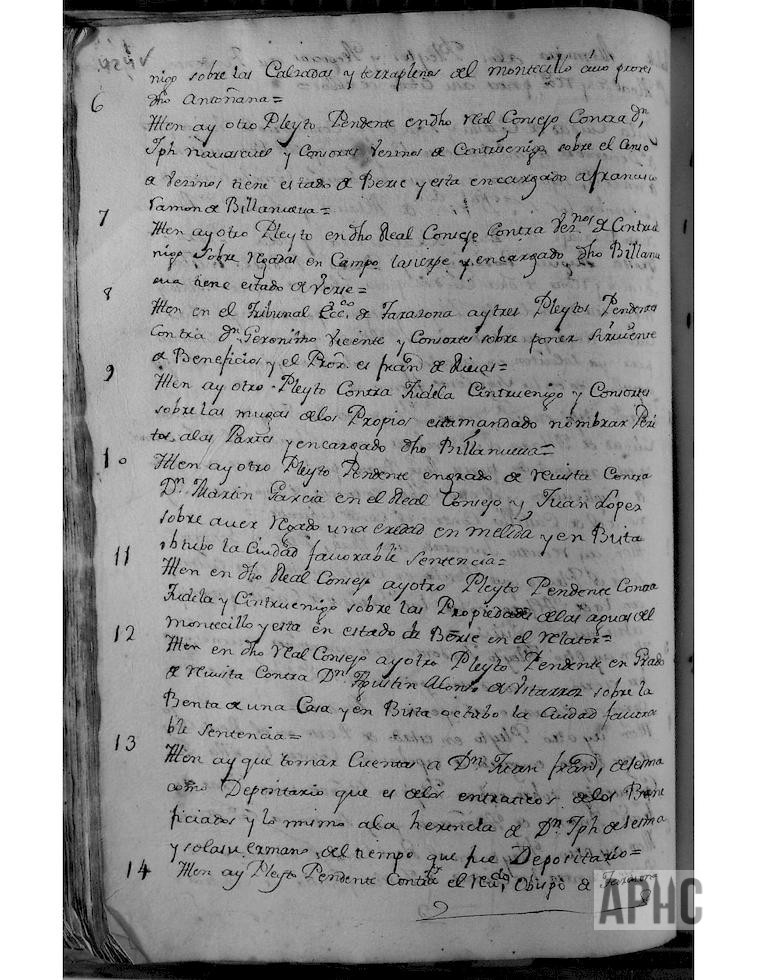 nigo sobre las Calzadas y terraplenos del montecillo
dho Antoñana=
6 Itten ay otro Pleyto Pendente en dho Real Consejo Contra dn,
Jph Navascues y Consortes Vecinos de Contruenigo sobre el
a Vecinos tiene estado de Berse y esta encargado a francisco
Ramon de Billanueva=
7 Itten ay otro Pleyto en dho Real Consejo Contra Vecnos de Cintrue
nigo Sobre Regadas en Campo la sierpe y encargado dho Billanu
eva tiene estado de Verse=
8 Itten en el Tribunal Ecc.co de Tarazona ay tres Pleytos Pendentes
Contra dn Geronimo Vicente y Consortes sobre poner Sirviente
de Beneficios y el Pror. es francd de Rivas=
9 Itten ay otro Pleyto Contra Tudela Cintruenigo y Consortes
sobre las mugas de los Propios esta mandado nombrar Peri
tos alas Partes y encargado dho Billanueva=
10 Itten ay otro Pleyto Pendente en grado de revista Contra
Dn. Martin Garcia en el Real Consejo y Juan Lopez
sobre aver Regado una eredad en melida y en Bista
obtubo la Ciudad favorable Sentencia=
11 Itten en dho Real Consejo ay otro Pleyto Pendente Contra
Tudela y Cintruenigo sobre las Propiedades de las aguas del
montecillo y esta en estado de Berse en el Relator=
12 Itten en dho Real Consejo ay otro Pleyto Pendente en Grado
de revista Contra Dn. Agustin Alonso de Vstarroz sobre la
Benta de una Casa y en Bista octubo la Ciudad favora
ble Sentencia=
13 Itten ay que tomar Cuentas a Dn Juan francd, de sesma
como Depositario que es de los entraticos de los Bene
ficiados y lo mismo a la herencia de Dn. Jph de sesma
y solas u ermano, del tiempo que fue Depositario=
14 Itten ay Pleyto Pendente Contra el Obispo de Tarazona
APHC